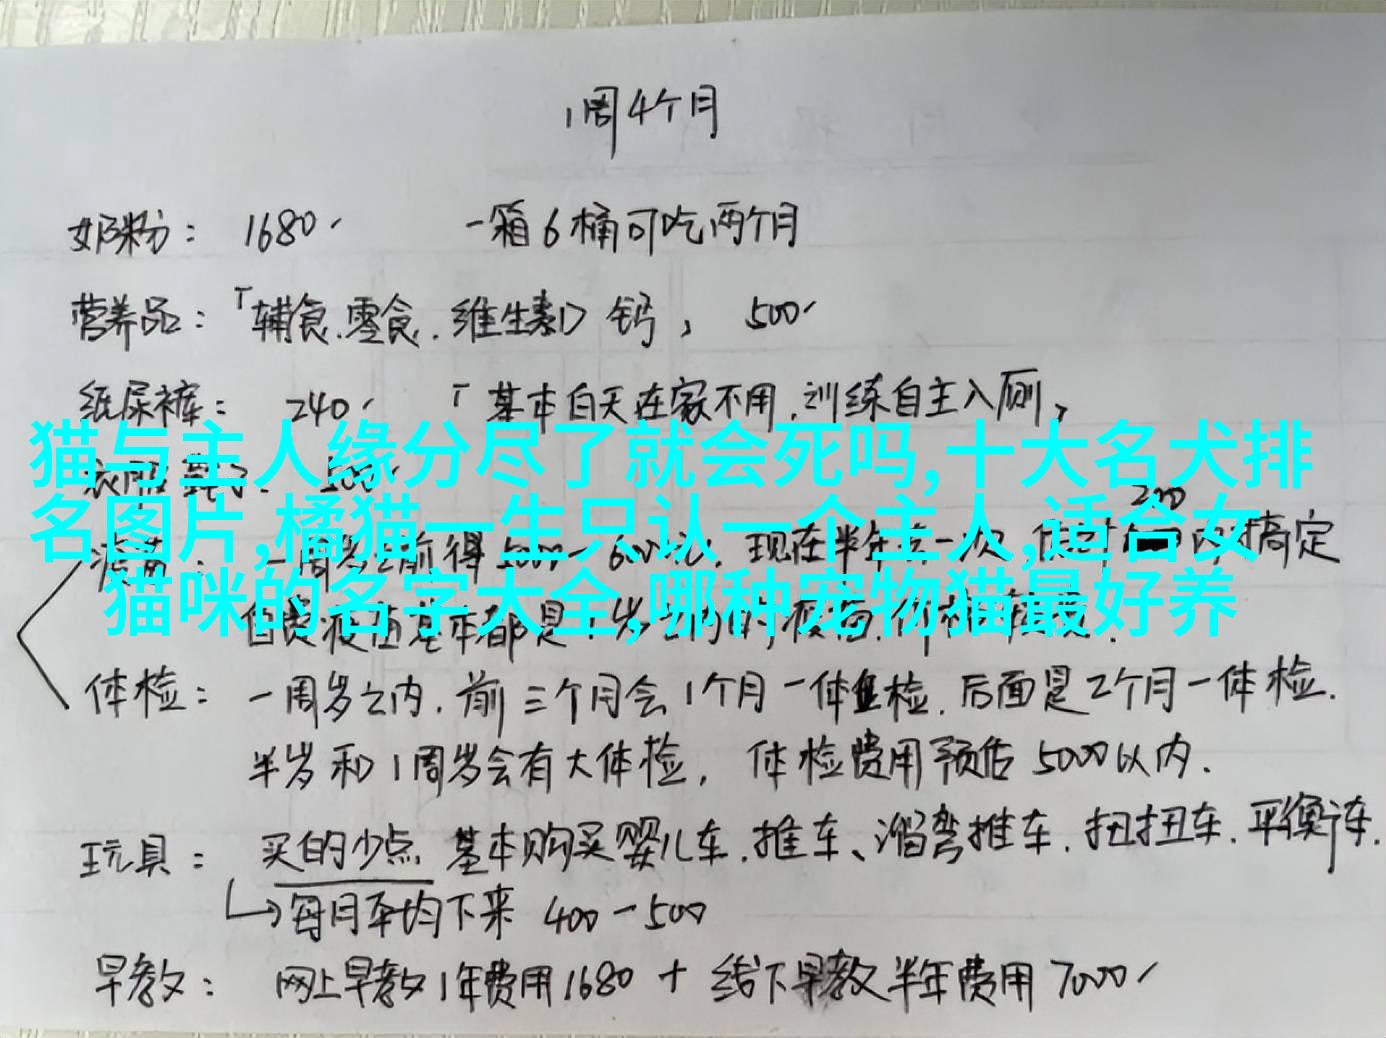 1周4个月
奶粉： 1680 一箱6桶可吃两个月
营养品：「辅食.零食.维生素D 钙， 500
纸尿裤： 240 「基本白天在家不用.训练自主入厕，
猫与主人缘分尽了就会死吗,十大名犬排
名图片,橘猫一生只认一个主人,适合女
猫咪的名字大全,哪种宠物猫最好养
200
一周岁之前得5000-6000元. 现在半年一次 搞定
自费疫苗基本都是1岁之内的疫苗.
体检： 一周岁之内.前三个月会1个月一体检.后面是2个月一体检.
半岁和1周岁会有大体检， 体检费用预估5000以内.
玩具： 买的少点 基本购买婴儿车.推车、溜弯推车.扭扭车.平衡车.
每月平均下来 400-500
早教： 网上早教1年费用1680 + 线下早教半年费用7000